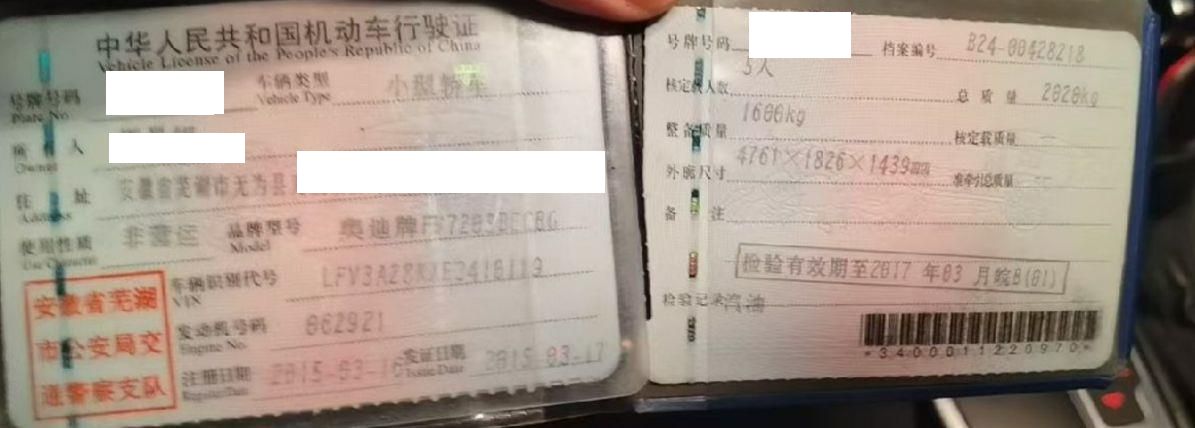 中华人民共和国机动车行驶证
Vehicle License of the People's Republic of China
号牌号码
Plate No.
车辆类型
Vehicle Type
小型轿车
所有人
Owner
住址
Address
安徽省芜湖市无为县
使用性质
Use Character
非营运
品牌型号
Model
奥迪牌
车辆识别代号
VIN
发动机号码
Engine No.
062921
注册日期
Register Date
2015-03-16
发证日期
Issue Date
2015-03-17
安徽省芜湖
市公安局交
通警察支队
号牌号码
档案编号
B24-00428218
核定载人数
5人
总质量
2020kg
整备质量
1600kg
核定载质量
--
外廓尺寸
4761×1826×1439mm
准牵引总质量
--
备注
检验有效期至2017 年03 月皖B(01)
检验记录
汽油
*3400011220970*